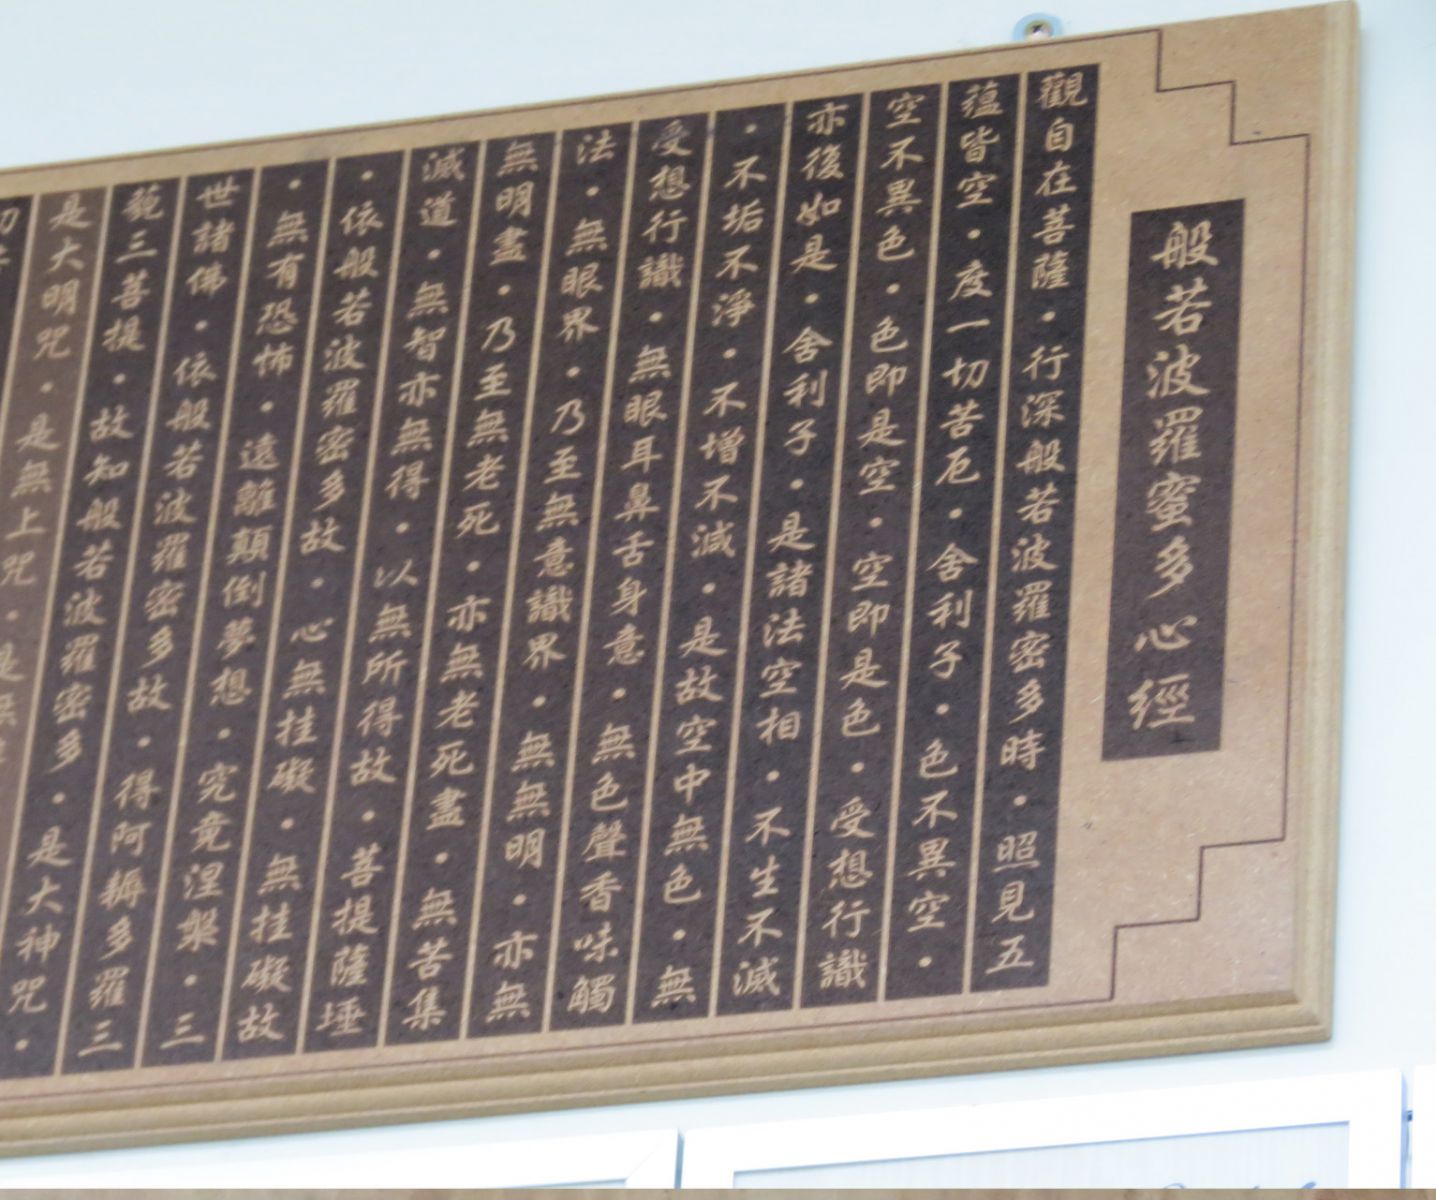 般若波羅蜜多心經
觀自在菩薩・行深般若波羅密多時・照見五
蘊皆空・度一切苦厄・舍利子・色不異空・
空不異色・色即是空・空即是色・受想行識
亦復如是・舍利子・是諸法空相・不生不滅
・不垢不淨・不增不減・是故空中無色・無
受想行識・無眼耳鼻舌身意・無色聲香味觸
法・無眼界・乃至無意識界・無無明・亦無
無明盡・乃至無老死・亦無老死盡・無苦集
滅道・無智亦無得・以無所得故・菩提薩埵
・依般若波羅密多故・心無挂礙・無挂礙故
・無有恐怖・遠離顛倒夢想・究竟涅槃・三
世諸佛・依般若波羅密多故・得阿耨多羅三
藐三菩提・故知般若波羅密多・是大神咒・
是大明咒・是無上咒・是無